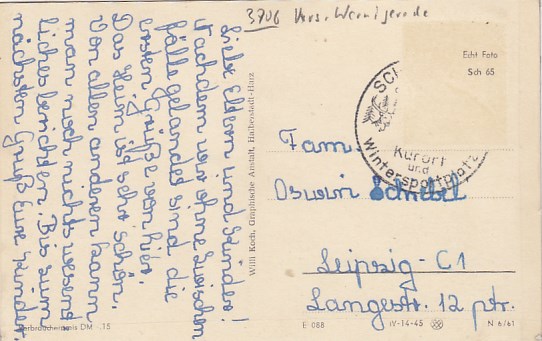 3706 Krs. Wernigerode
Liebe Eltern und Kinder!
Nachdem wir ohne Zwischen
fälle gelandet sind die
ersten Grüße von hier.
Das Heim ist sehr schön.
Von allen anderen kann
man noch nichts wesent
liches berichten. Bis zum
nächsten Gruß Eure Kinder.
Willi Koch, Graphische Anstalt, Halberstadt-Harz
Echt Foto
Sch 65
SCH
Kurort
und
Wintersportplatz
Fam.
Oswin
Leipzig-C1
Langestr. 12 ptr.
Verbraucherpreis DM -.15
E 088
IV-14-45
N 6/61